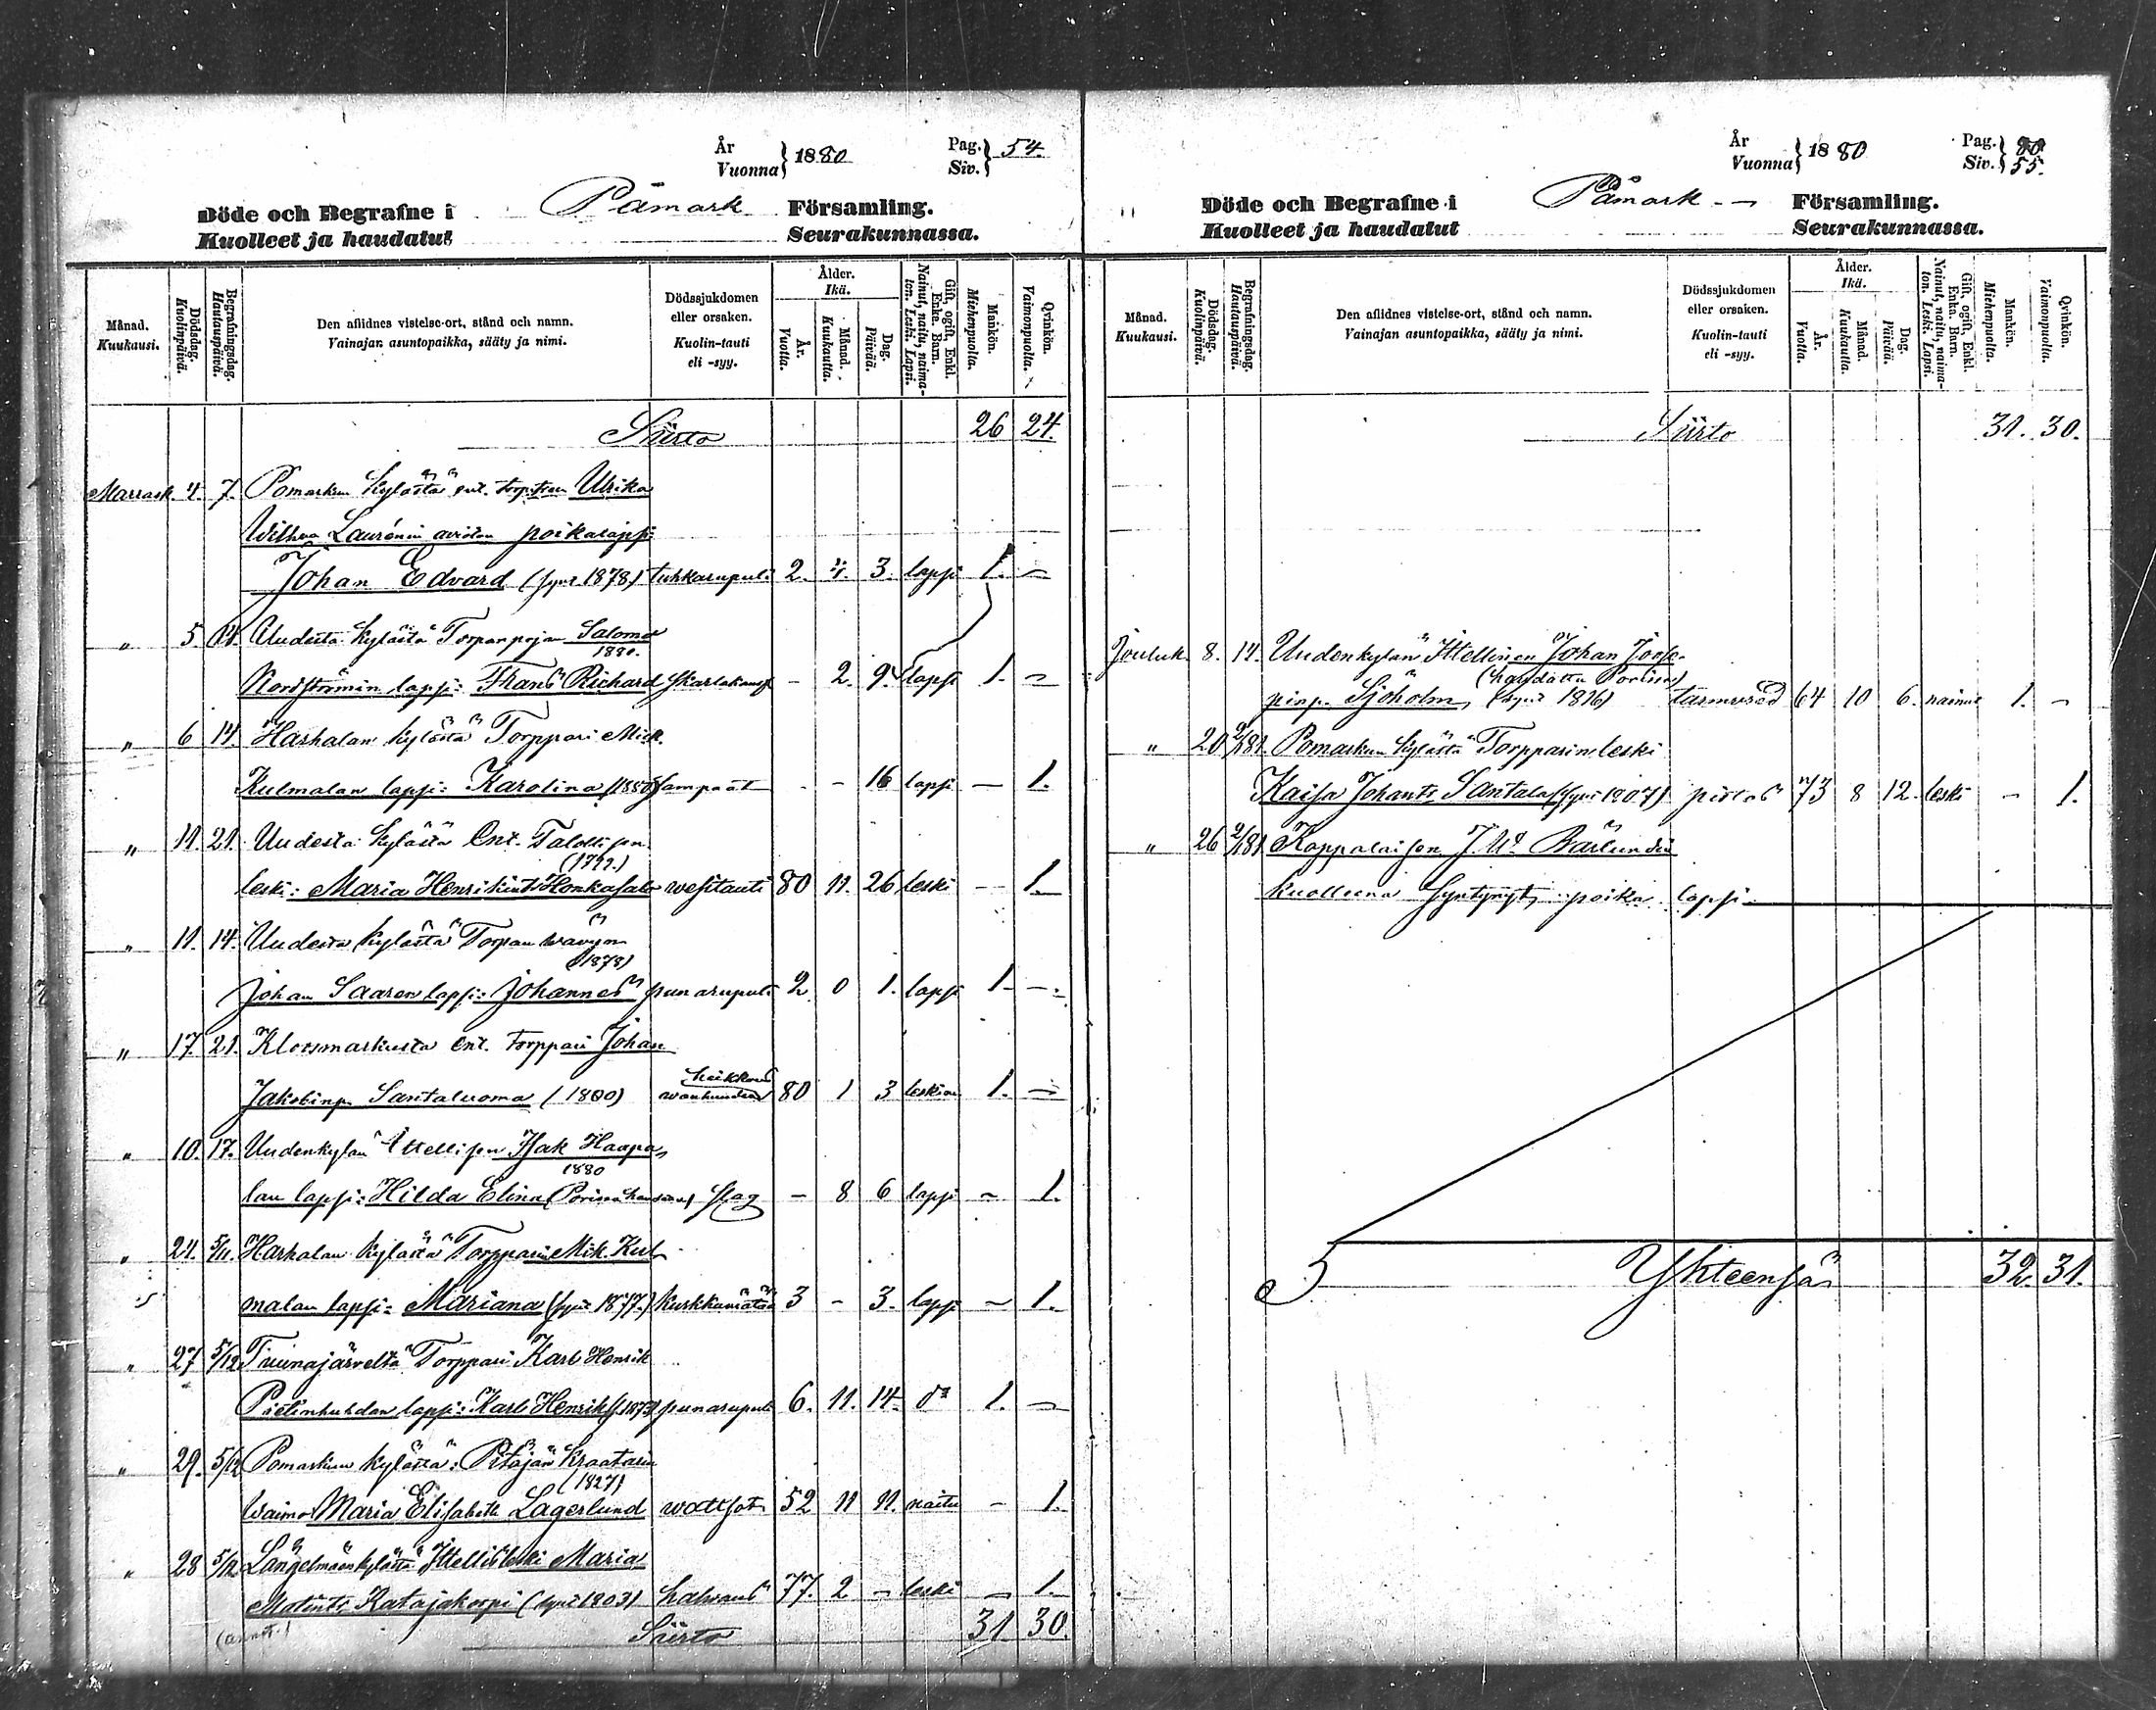 År
Vuonna } 1880
Pag.
Siv. } 54.
Döde och Begrafne i Påmark Församling.
Kuolleet ja haudatut Seurakunnassa.
Månad. Kuukausi.
Dödsdag. Kuolinpäivä.
Begrafningsdag. Hautauspäivä.
Den aflidnes vistelse-ort, stånd och namn.
Vainajan asuntopaikka, sääty ja nimi.
Dödssjukdomen eller orsaken.
Kuolin-tauti eli -syy.
Ålder. Ikä.
År. Vuotta.
Månad. Kuukautta.
Dag. Päivää.
Gift, ogift, Enkl. Enka. Barn.
Nainut, naitu, naimaton. Leski. Lapsi.
Mankön. Miehenpuolta.
Qvinkön. Vaimonpuolta.
Siirto 26 24.
Marrask. 4. 7. Pomarkun kylästä ent. Ulrika
Laurénin poikalapsi
Johan Edvard (synt 1878) tuhkarupuli 2. 4. 3. lapsi 1. –
" 5. 14. Uudesta kylästä Torparpojan Salomo
1880.
Nordströmin lapsi: Frans Richard – 2. 9. lapsi 1. –
" 6 14. Harhalan kylästä Torppari Mick.
Kulmalan lapsi: Karolina (1880) – – 16 lapsi – 1.
" 11. 21. Uudesta kylästä Ent. Talollisen
(1799.)
leski: Maria Henrikint. Honkasalo wesitauti 80 11. 26 leski – 1.
" 11. 14. Uudesta kylästä Torpan wävyn
(1878)
Johan Saaren lapsi: Johannes punarupuli 2. 0 1. lapsi 1. –
" 17. 21. Kloosmarkusta Ent. Torppari Johan
heikkous
Jakobinp. Santaluoma (1800) 80 1 3 1. –
" 10. 17. Uudenkylän Ittellisen Isak Haapa,
1880
lan lapsi: Hilda Elina slag – 8 6 lapsi – 1.
" 21. 5/11. Harhalan kylästä Torpparin Mik. Kul
malan lapsi: Mariana (synt 1877.) 3 – 3. lapsi – 1.
" 27 5/12 Tuunajärveltä Torppari Karl Henrik
lapsi: Karl Henrik punarupuli 6. 11. 14. d:o 1. –
" 29. 5/12 Pomarkun kylästä: Pitäjän Kraatarin
(1827)
Waimo Maria Elisabeth Lagerlund 52 11 11. naitu – 1.
" 28 5/12 Längelmäenkylästä Ittellis leski Maria
Matint. Katajakorpi (synt 1803) halvaus 77. 2 – leski – 1.
Siirto 31 30.
År
Vuonna } 1880
Pag.
Siv. } 55.
Döde och Begrafne i Påmark Församling.
Kuolleet ja haudatut Seurakunnassa.
Månad. Kuukausi.
Dödsdag. Kuolinpäivä.
Begrafningsdag. Hautauspäivä.
Den aflidnes vistelse-ort, stånd och namn.
Vainajan asuntopaikka, sääty ja nimi.
Dödssjukdomen eller orsaken.
Kuolin-tauti eli -syy.
Ålder. Ikä.
År. Vuotta.
Månad. Kuukautta.
Dag. Päivää.
Gift, ogift, Enkl. Enka. Barn.
Nainut, naitu, naimaton. Leski. Lapsi.
Mankön. Miehenpuolta.
Qvinkön. Vaimonpuolta.
Siirto 31. 30.
Jouluk. 8. 14. Uudenkylän Ittellinen Johan Joose-
(haudattu Porissa)
pinp. Sjöholm, (synt 1816) 64 10 6. nainut 1. –
" 20 2/1 81. Pomarkun kylästä Torpparin leski
Kaisa Johant. Santala pistos 73 8 12. leski – 1.
" 26 2/1 81 Kappalaisen
kuolleena syntynyt poika lapsi
Yhteensä 32. 31.